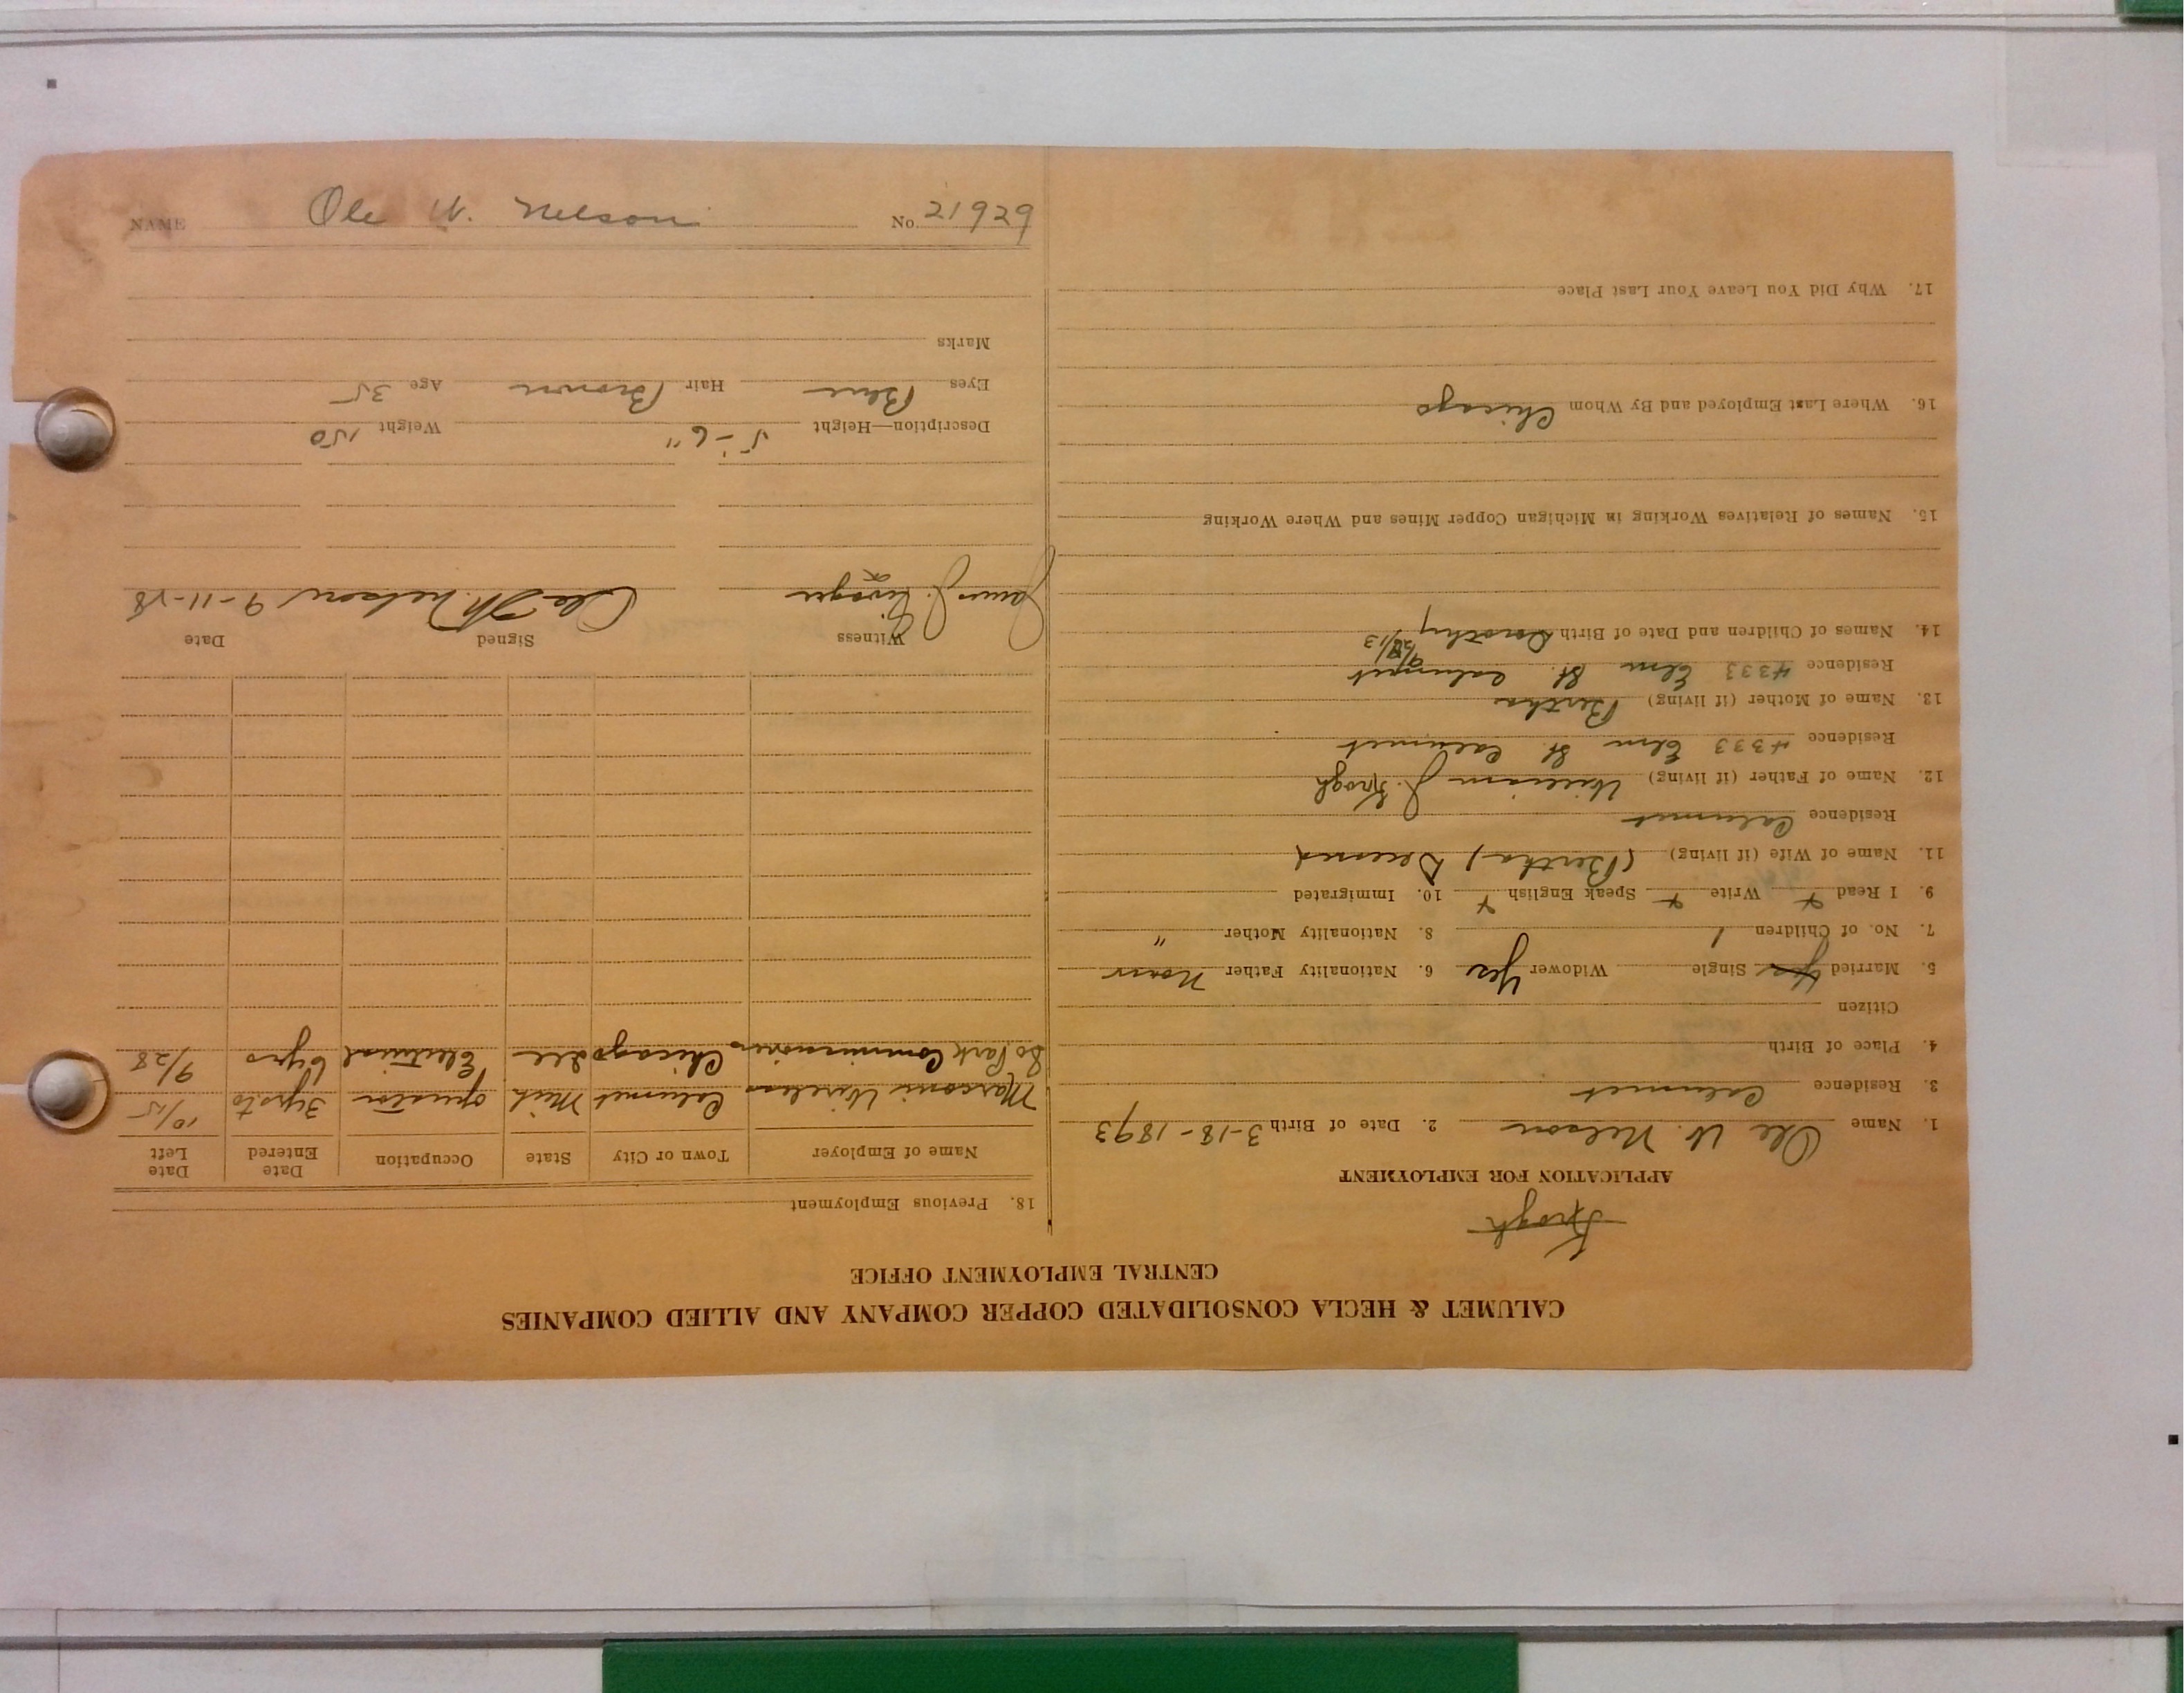 CALUMET & HECLA CONSOLIDATED COPPER COMPANY AND ALLIED COMPANIES
CENTRAL EMPLOYMENT OFFICE
Krogh
APPLICATION FOR EMPLOYMENT
1. Name Ole W. Nelson 2. Date of Birth 3-18-1893
3. Residence Calumet
4. Place of Birth
Citizen
5. Married Yes Single Widower Yes 6. Nationality Father Norw
7. No. of Children 1 8. Nationality Mother "
9. I Read + Write + Speak English + 10. Immigrated
11. Name of Wife (if living) (Bertha) Deceased
Residence Calumet
12. Name of Father (if living) William J. Krogh
Residence 4333 Elm St. Calumet
13. Name of Mother (if living) Bertha
Residence 4333 Elm St. Calumet
14. Names of Children and Date of Birth Dorothy
15. Names of Relatives Working in Michigan Copper Mines and Where Working
16. Where Last Employed and By Whom Chicago
17. Why Did You Leave Your Last Place
18. Previous Employment
Name of Employer Town or City State Occupation Date Entered Date Left
Marconi Wireless Calumet Mich operator 3yrs to 10/15
So Park Commissioners Chicago Ill Electrical yrs 9/28
Witness Signed Date
James J. Ole W. Nelson 9-11-28
Description—Height 5'-6" Weight 150
Eyes Blue Hair Brown Age 35
Marks
NAME Ole W. Nelson No. 21929